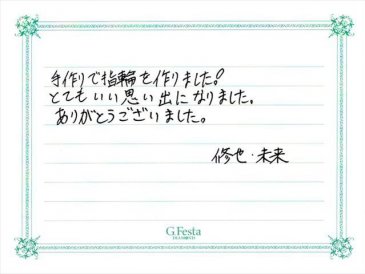 手作りで指輪を作りました!
とてもいい思い出になりました。
ありがとうございました。
修也・未来
G.Festa
DIAMOND